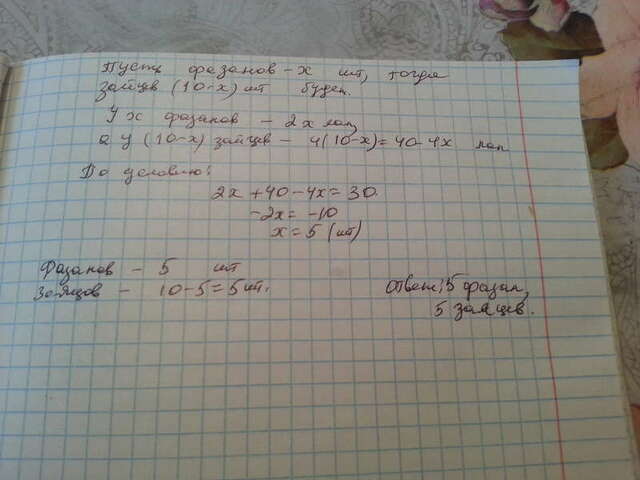 Пусть фазанов - х шт, тогда
зайцев (10-х) шт будет.
У х фазанов - 2х лап,
а у (10-х) зайцев - 4(10-х)=40-4х лап
По условию:
2х +40-4х=30.
-2х= -10
х=5 (шт)
Фазанов - 5 шт
Зайцов - 10-5=5шт.
Ответ: 5 фазан,
5 зайцев.